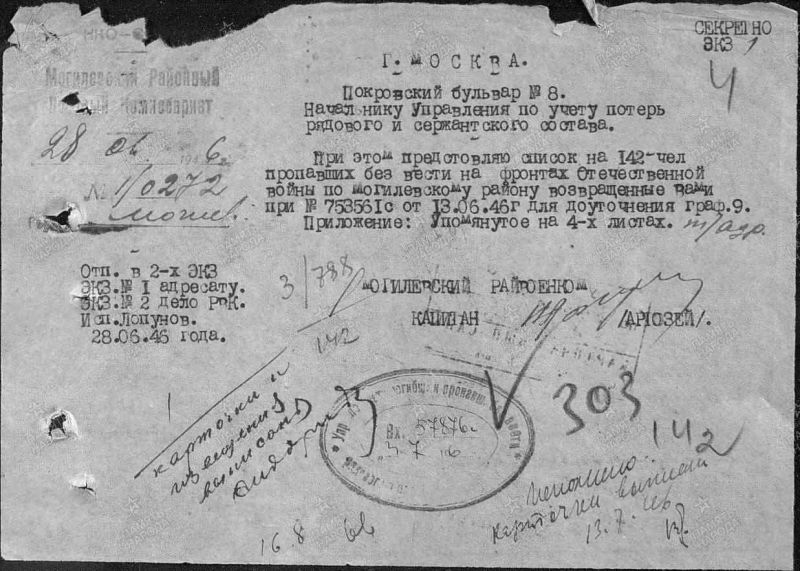 СЕКРЕТНО
ЭКЗ 1
4
НКО-
Могилевский Районный
Комиссариат
28 06 194 6 г.
№ 1/0272
Могилев.
Г. МОСКВА.
Покровский бульвар № 8.
Начальнику Управления по учету потерь
рядового и сержантского состава.
При этом предстовляю список на 142-чел
пропавших без вести на фронтах Отечественной
войны по могилевскому району возвращенные вами
при № 753561с от 13.06.46г для доуточнения граф.9.
Приложение: Упомянутое на 4-х листах.
Отп. в 2-х ЭКЗ
ЭКЗ.№ 1 адресату.
ЭКЗ.№ 2 дело РВК.
Исп.Лопунов.
28.06.46 года.
3/788
142
МОГИЛЕВСКИЙ РАЙВОЕНКОМ
КАПИТАН /АРЮЗЕЙ/.
1
карточки и
извещения
выписаны
Упр. погибш. и пропавш.
Вх. 57876с
7
303
142
Исполнено.
Карточки выписаны
13.7.46
16.8 46